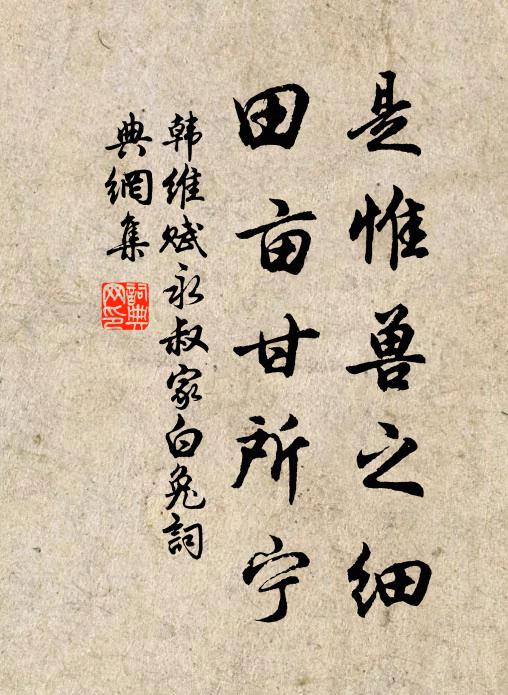 是惟兽之细
田亩甘所宁
韩维赋永叔家白兔詞
典網集
詞典網印